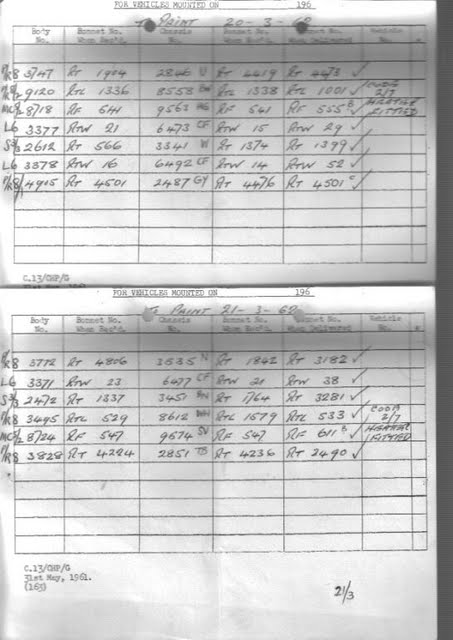 FOR VEHICLES MOUNTED ON 196
TO PAINT 20-3-62
Body No. Bonnet No. When Rec'd. Chassis No. Bonnet No. When Delivered Vehicle No.
P/R8 3747 RT 1904 2846 RT 4419 RT 4473 ✓
9120 RTL 1336 8558 RTL 1338 RTL 1001 ✓ COOR 2/7
8/18 RF 541 9563 RF 541 RF 555 B ✓ HEATER FITTED
L6 3377 RTW 21 6473 CF RTW 15 RTW 29 ✓
2612 RT 566 3341 RT 1374 RT 1399 ✓
L6 3378 RTW 16 6492 CF RTW 14 RTW 52 ✓
P/R8 4915 RT 4501 2487 GY RT 4476 RT 4501 C ✓
C.13/CHP/G
FOR VEHICLES MOUNTED ON 196
TO PAINT 21-3-62
Body No. Bonnet No. When Rec'd. Chassis No. Bonnet No. When Delivered Vehicle No.
P/R8 3772 RT 4806 3535 N RT 1842 RT 3182 ✓
L6 3371 RTW 23 6477 CF RTW 21 RTW 38 ✓
2472 RT 1337 3451 RT 1764 RT 3281 ✓
P/R8 3495 RTL 529 8612 RTL 1579 RTL 533 ✓ COOR 2/7
8/24 RF 547 9574 SV RF 547 RF 611 B ✓ HEATER FITTED
P/R8 3828 RT 4224 2851 TB RT 4236 RT 2490 ✓
C.13/CHP/G
31st May, 1961.
(163)
21/3